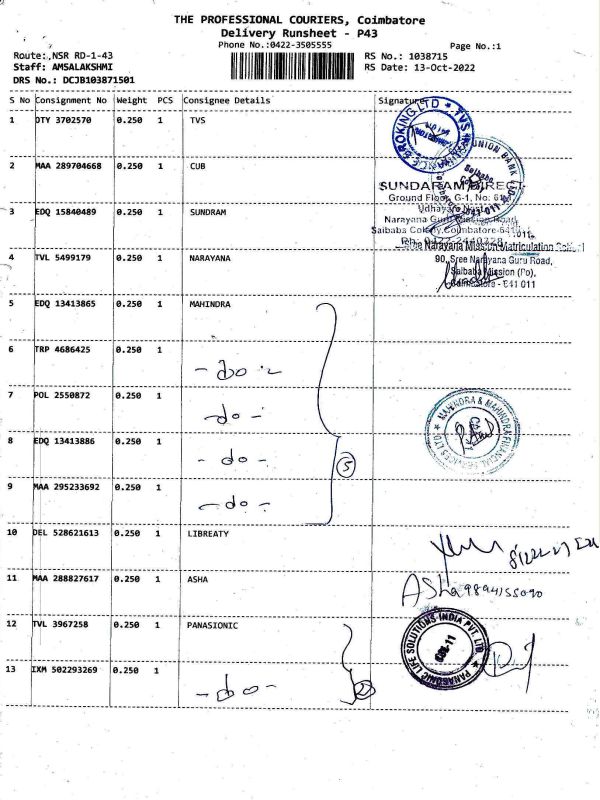 THE PROFESSIONAL COURIERS, Coimbatore
Delivery Runsheet - P43
Phone No.:0422-3505555
Page No.:1
Route:,NSR RD-1-43
RS No.: 1038715
Staff: AMSALAKSHMI
RS Date: 13-Oct-2022
DRS No.: DCJB103871501
S No Consignment No Weight PCS Consignee Details Signature
1 DTY 3702570 0.250 1 TVS
2 MAA 289704668 0.250 1 CUB
UNION BANK LTD
SUNDARAM DIRECT
Ground Floor, G-1, No:
3 EDQ 15840489 0.250 1 SUNDRAM
Narayana Guru Mission Road
Saibaba Colony, Coimbatore-641
Narayana Mission Matriculation
4 TVL 5499179 0.250 1 NARAYANA
90, Sree Narayana Guru Road,
Saibaba Mission (Po),
Coimbatore - 641 011
5 EDQ 13413865 0.250 1 MAHINDRA
6 TRP 4686425 0.250 1
- do -
7 POL 2550872 0.250 1
- do -
MAHINDRA & MAHINDRA FINANCIAL SERVICES LTD
8 EDQ 13413886 0.250 1
- do -
5
9 MAA 295233692 0.250 1
- do -
10 DEL 528621613 0.250 1 LIBREATY
11 MAA 288827617 0.250 1 ASHA
Asha 9894155090
12 TVL 3967258 0.250 1 PANASIONIC
PANASONIC LIFE SOLUTIONS INDIA PVT. LTD
CBE-11
13 IXM 502293269 0.250 1
- do -
2